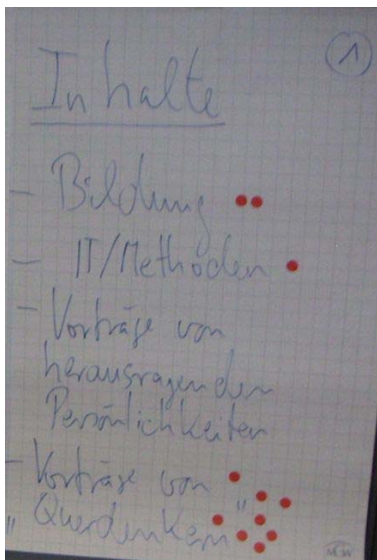 1
Inhalte
- Bildung
- IT/Methoden
- Vorträge von
herausragenden
Persönlichkeiten
- Vorträge von
"Querdenkern"